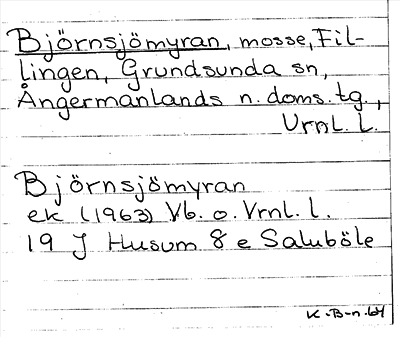 Björnsjömyran, mosse, Fil-
lingen, Grundsunda sn,
Ångermanlands n. doms. tg.,
Vrnl. L.
Björnsjömyran
ek (1963) Vb. o. Vrnl. l.
19 J Husum 8 e Saluböle
K.-B-n. 64